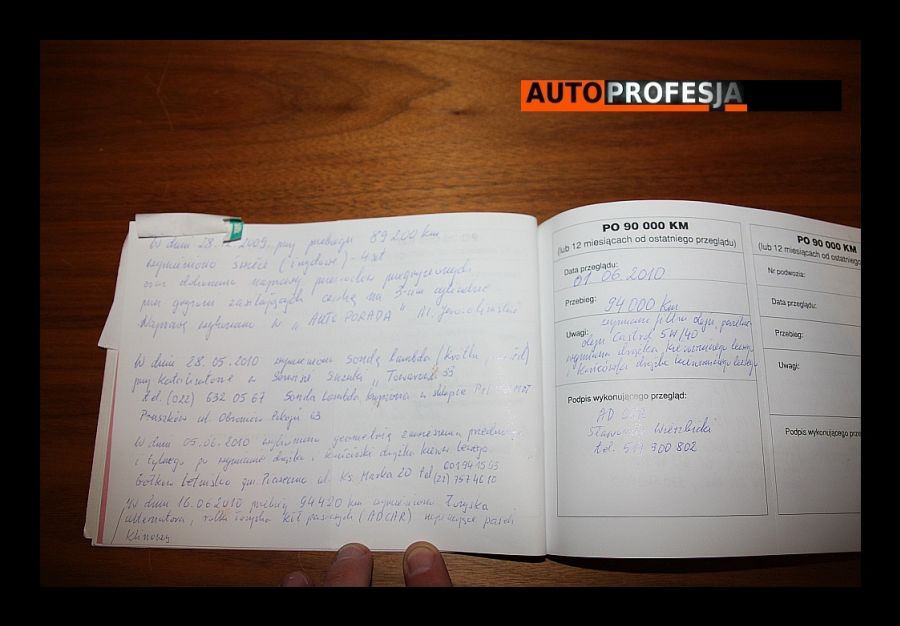 AUTOPROFESJA
W dniu 28. 2009, przy przebiegu 89 200 km
wymieniono świece () - 4 szt
oraz dokonano naprawy przewodów
przy zasilających cewkę na 3-cim cylindrze
Naprawę wykonano w "AUTO PORADA" Al. Jerozolimskie
W dniu 28.05.2010 wymieniono sondę lambda (
przy katalizatorze w Serwisie "Towarowa 33
tel. (022) 632 05 67 Sonda Lambda kupiona w sklepie
Pruszków ul. Obrońców Pokoju 63
W dniu 05.06.2010 wykonano geometrię zawieszenia przedniego
i tylnego po wymianie drążka i końcówki drążka kierow. lewego.
Gółków Letnisko gm. Piaseczno ul. Ks. Marka 20 tel.
(22) 757 46 10
W dniu 16.06.2010 przebieg 94420 km wymieniono łożyska
alternatora, rolki łożyska kit pasowych (ADCAR) pasek
klinowy
PO 90 000 KM
(lub 12 miesiącach od ostatniego przeglądu)
Data przeglądu:
01 06.2010
Przebieg:
94 000 km
Uwagi: wymiana filtra oleju,
oleju Castrol 5W/40
wymiana drążka kierowniczego lewego
końcówki drążka kierowniczego lewego
Podpis wykonującego przegląd:
AD CAR
Wierzbicki
tel. 511 300 802
PO 90 000 KM
(lub 12 miesiącach od ostatniego
Nr podwozia:
Data przeglądu:
Przebieg:
Uwagi:
Podpis wykonującego prze